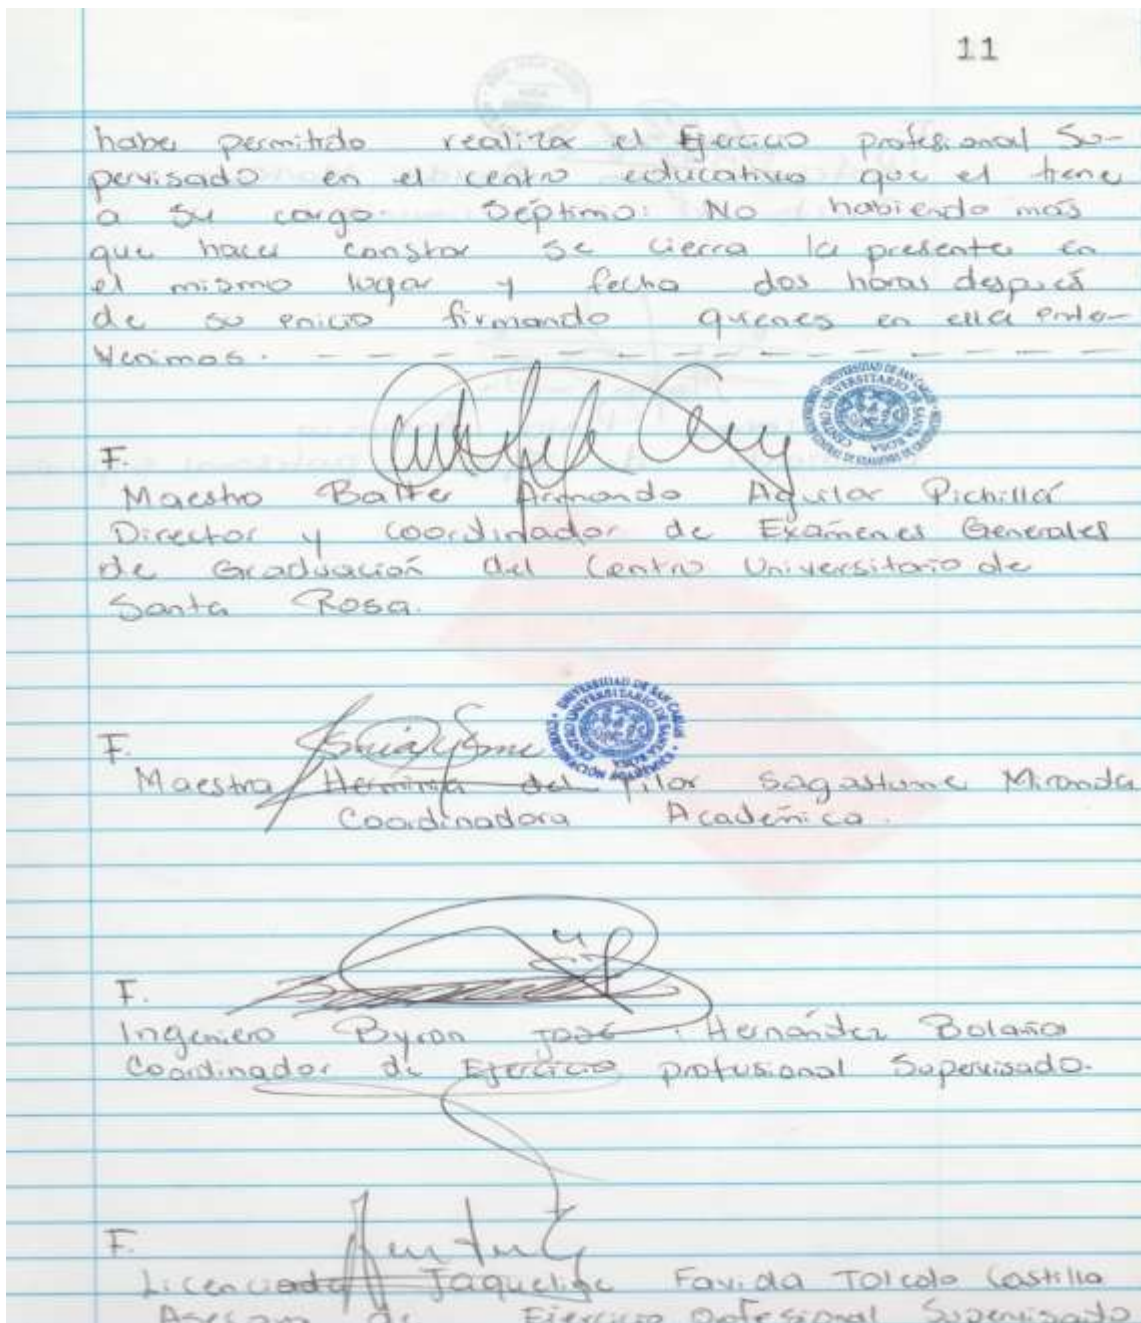 11
haber permitido realizar el Ejercicio profesional Su-
pervisado en el centro educativo que el tiene
a su cargo. Séptimo: No habiendo más
que hacer constar se cierra la presente en
el mismo lugar y fecha dos horas después
de su inicio firmando quienes en ella inter-
venimos.
UNIVERSIDAD DE SAN CARLOS
CENTRO UNIVERSITARIO DE SANTA ROSA
F.
Maestro Balter Armando Aguilar Pichillá
Director y coordinador de Exámenes Generales
de Graduación del Centro Universitario de
Santa Rosa.
UNIVERSIDAD DE SAN CARLOS
CENTRO UNIVERSITARIO DE SANTA ROSA
COORDINACIÓN ACADÉMICA
F.
Maestra Herminia del Pilar Sagastume Miranda
Coordinadora Académica.
F.
Ingeniero Byron José Hernández Bolaños
Coordinador de Ejercicio profesional Supervisado.
F.
Licenciada Jaqueline Favida Toledo Castillo
Asesora de Ejercicio Profesional Supervisado